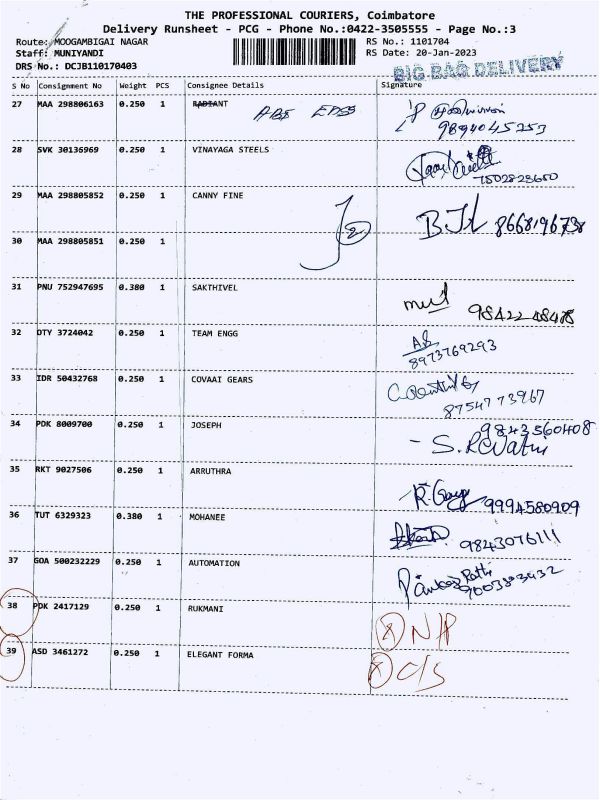 THE PROFESSIONAL COURIERS, Coimbatore
Delivery Runsheet - PCG - Phone No.:0422-3505555 - Page No.:3
Route: MOOGAMBIGAI NAGAR RS No.: 1101704
Staff: MUNIYANDI RS Date: 20-Jan-2023
DRS No.: DCJB110170403 BIG BAG DELIVERY
S No Consignment No Weight PCS Consignee Details Signature
27 MAA 298806163 0.250 1 RADIANT
9894045253
28 SVK 30136969 0.250 1 VINAYAGA STEELS
7502823650
29 MAA 298805852 0.250 1 CANNY FINE
2 8668196738
30 MAA 298805851 0.250 1
31 PNU 752947695 0.380 1 SAKTHIVEL
98422 48478
32 DTY 3724042 0.250 1 TEAM ENGG
8973769293
33 IDR 50432768 0.250 1 COVAAI GEARS
87547 73967
34 PDK 8009700 0.250 1 JOSEPH 9843560408
35 RKT 9027506 0.250 1 ARRUTHRA
9994580909
36 TUT 6329323 0.380 1 MOHANEE
9843076111
37 GOA 500232229 0.250 1 AUTOMATION
9003893432
38 PDK 2417129 0.250 1 RUKMANI
N/P
39 ASD 3461272 0.250 1 ELEGANT FORMA
C/S